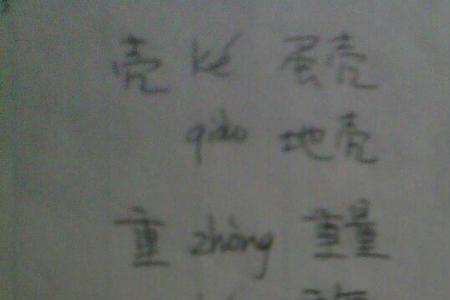 壳 ké 蛋壳
qiào 地壳
重 zhòng 重量